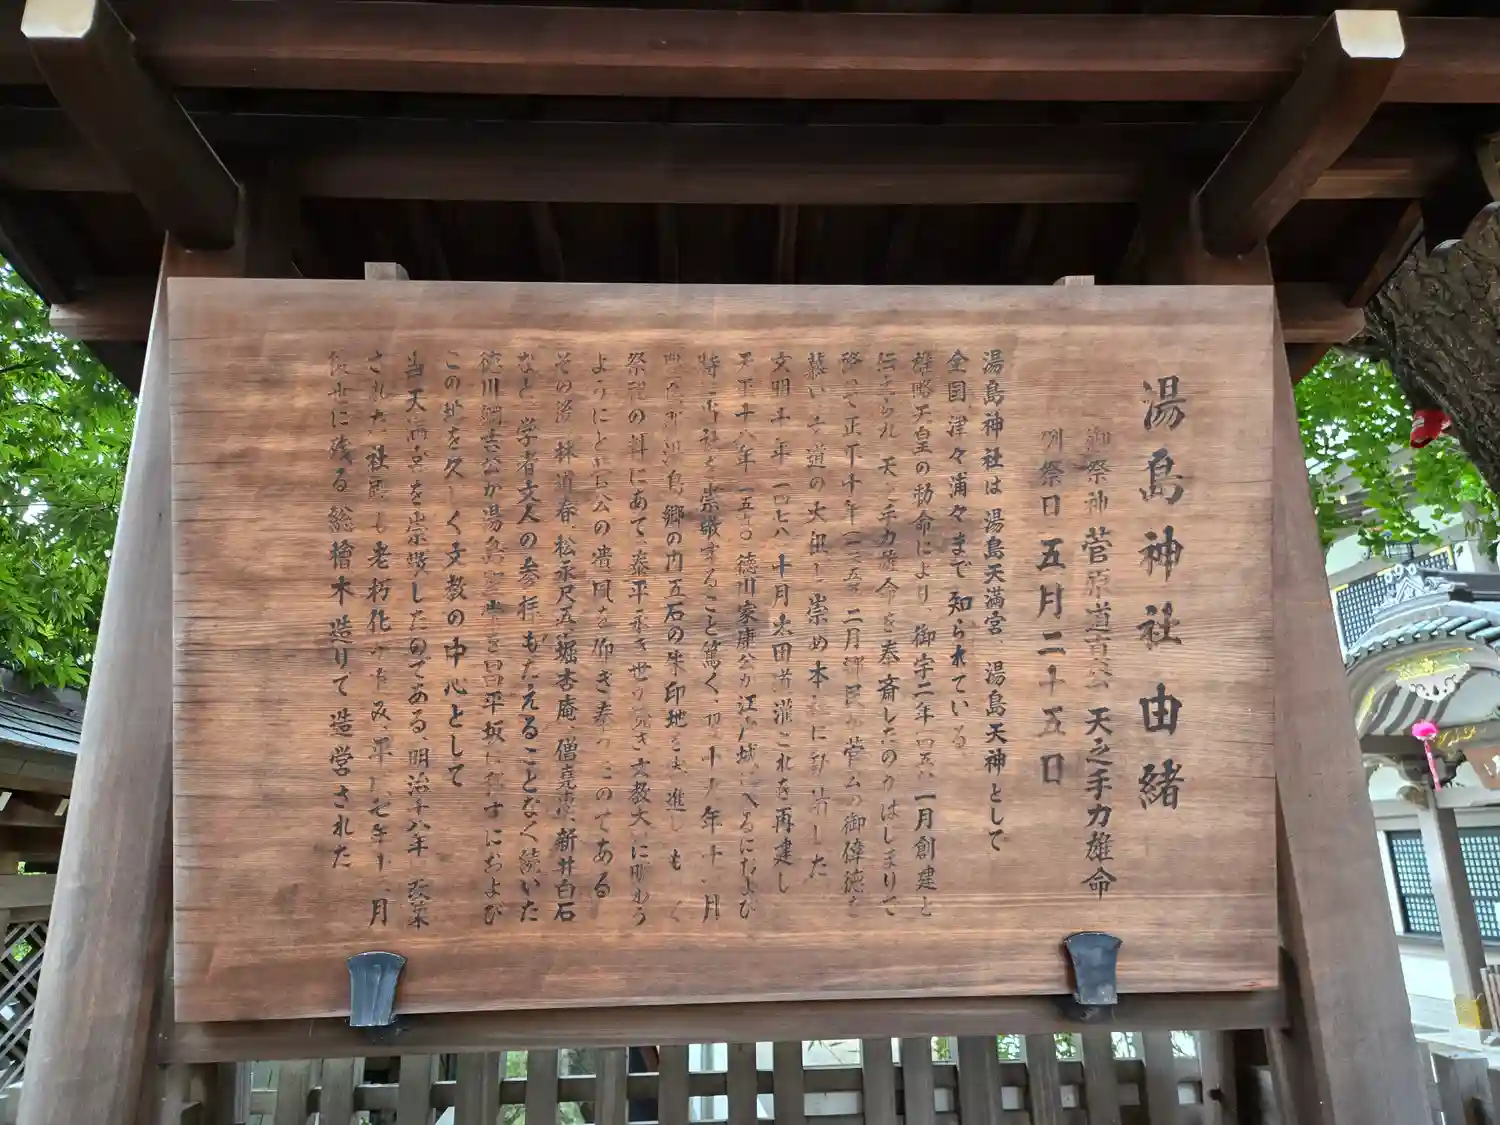 湯島神社由緒
御祭神 菅原道真公 天之手力雄命
例祭日 五月二十五日
湯島神社は湯島天満宮、湯島天神として
全国、津々浦々まで知られている
雄略天皇の勅命により、御宇二年一月創建と
伝えられ、天之手力雄命を奉斎したのがはじまりで
降って正平十年二月郷民が菅公の御偉徳を
慕い文道の大祖と崇め本社に勧請した
文明十年十月太田道灌これを再建し
天正十八年徳川家康公が江戸城に入るにおよび
特に当社を崇敬すること篤く、翌十九年十一月
湯島郷の内五石の朱印地を
祭祀の料にあて、泰平永き世が続き文教大いに賑わう
ようにと菅公の遺風を仰ぎ奉ったのである
その後、林道春、松永尺五、堀杏庵、僧堯恵、新井白石
など学者文人の参拝もたえることなく続いた
徳川綱吉公が湯島聖堂を昌平坂に移すにおよび
この地を久しく文教の中心として
当天満宮を崇敬したのである、明治十八年改築
された社殿も老朽化が進み、平成七年十二月
後世に残る総檜木造りで造営された